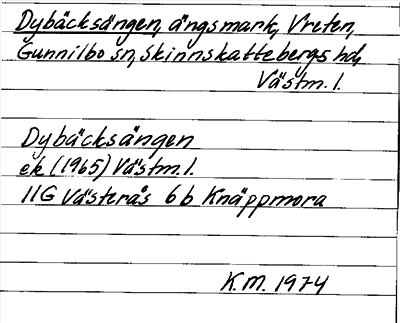 Dybäcksängen, ängsmark, Vreten,
Gunnilbo sn, Skinnskattebergs hd,
Västm. l.
Dybäcksängen
ek (1965) Västm. l.
11G Västerås 6b Knäppmora
K.M. 1974